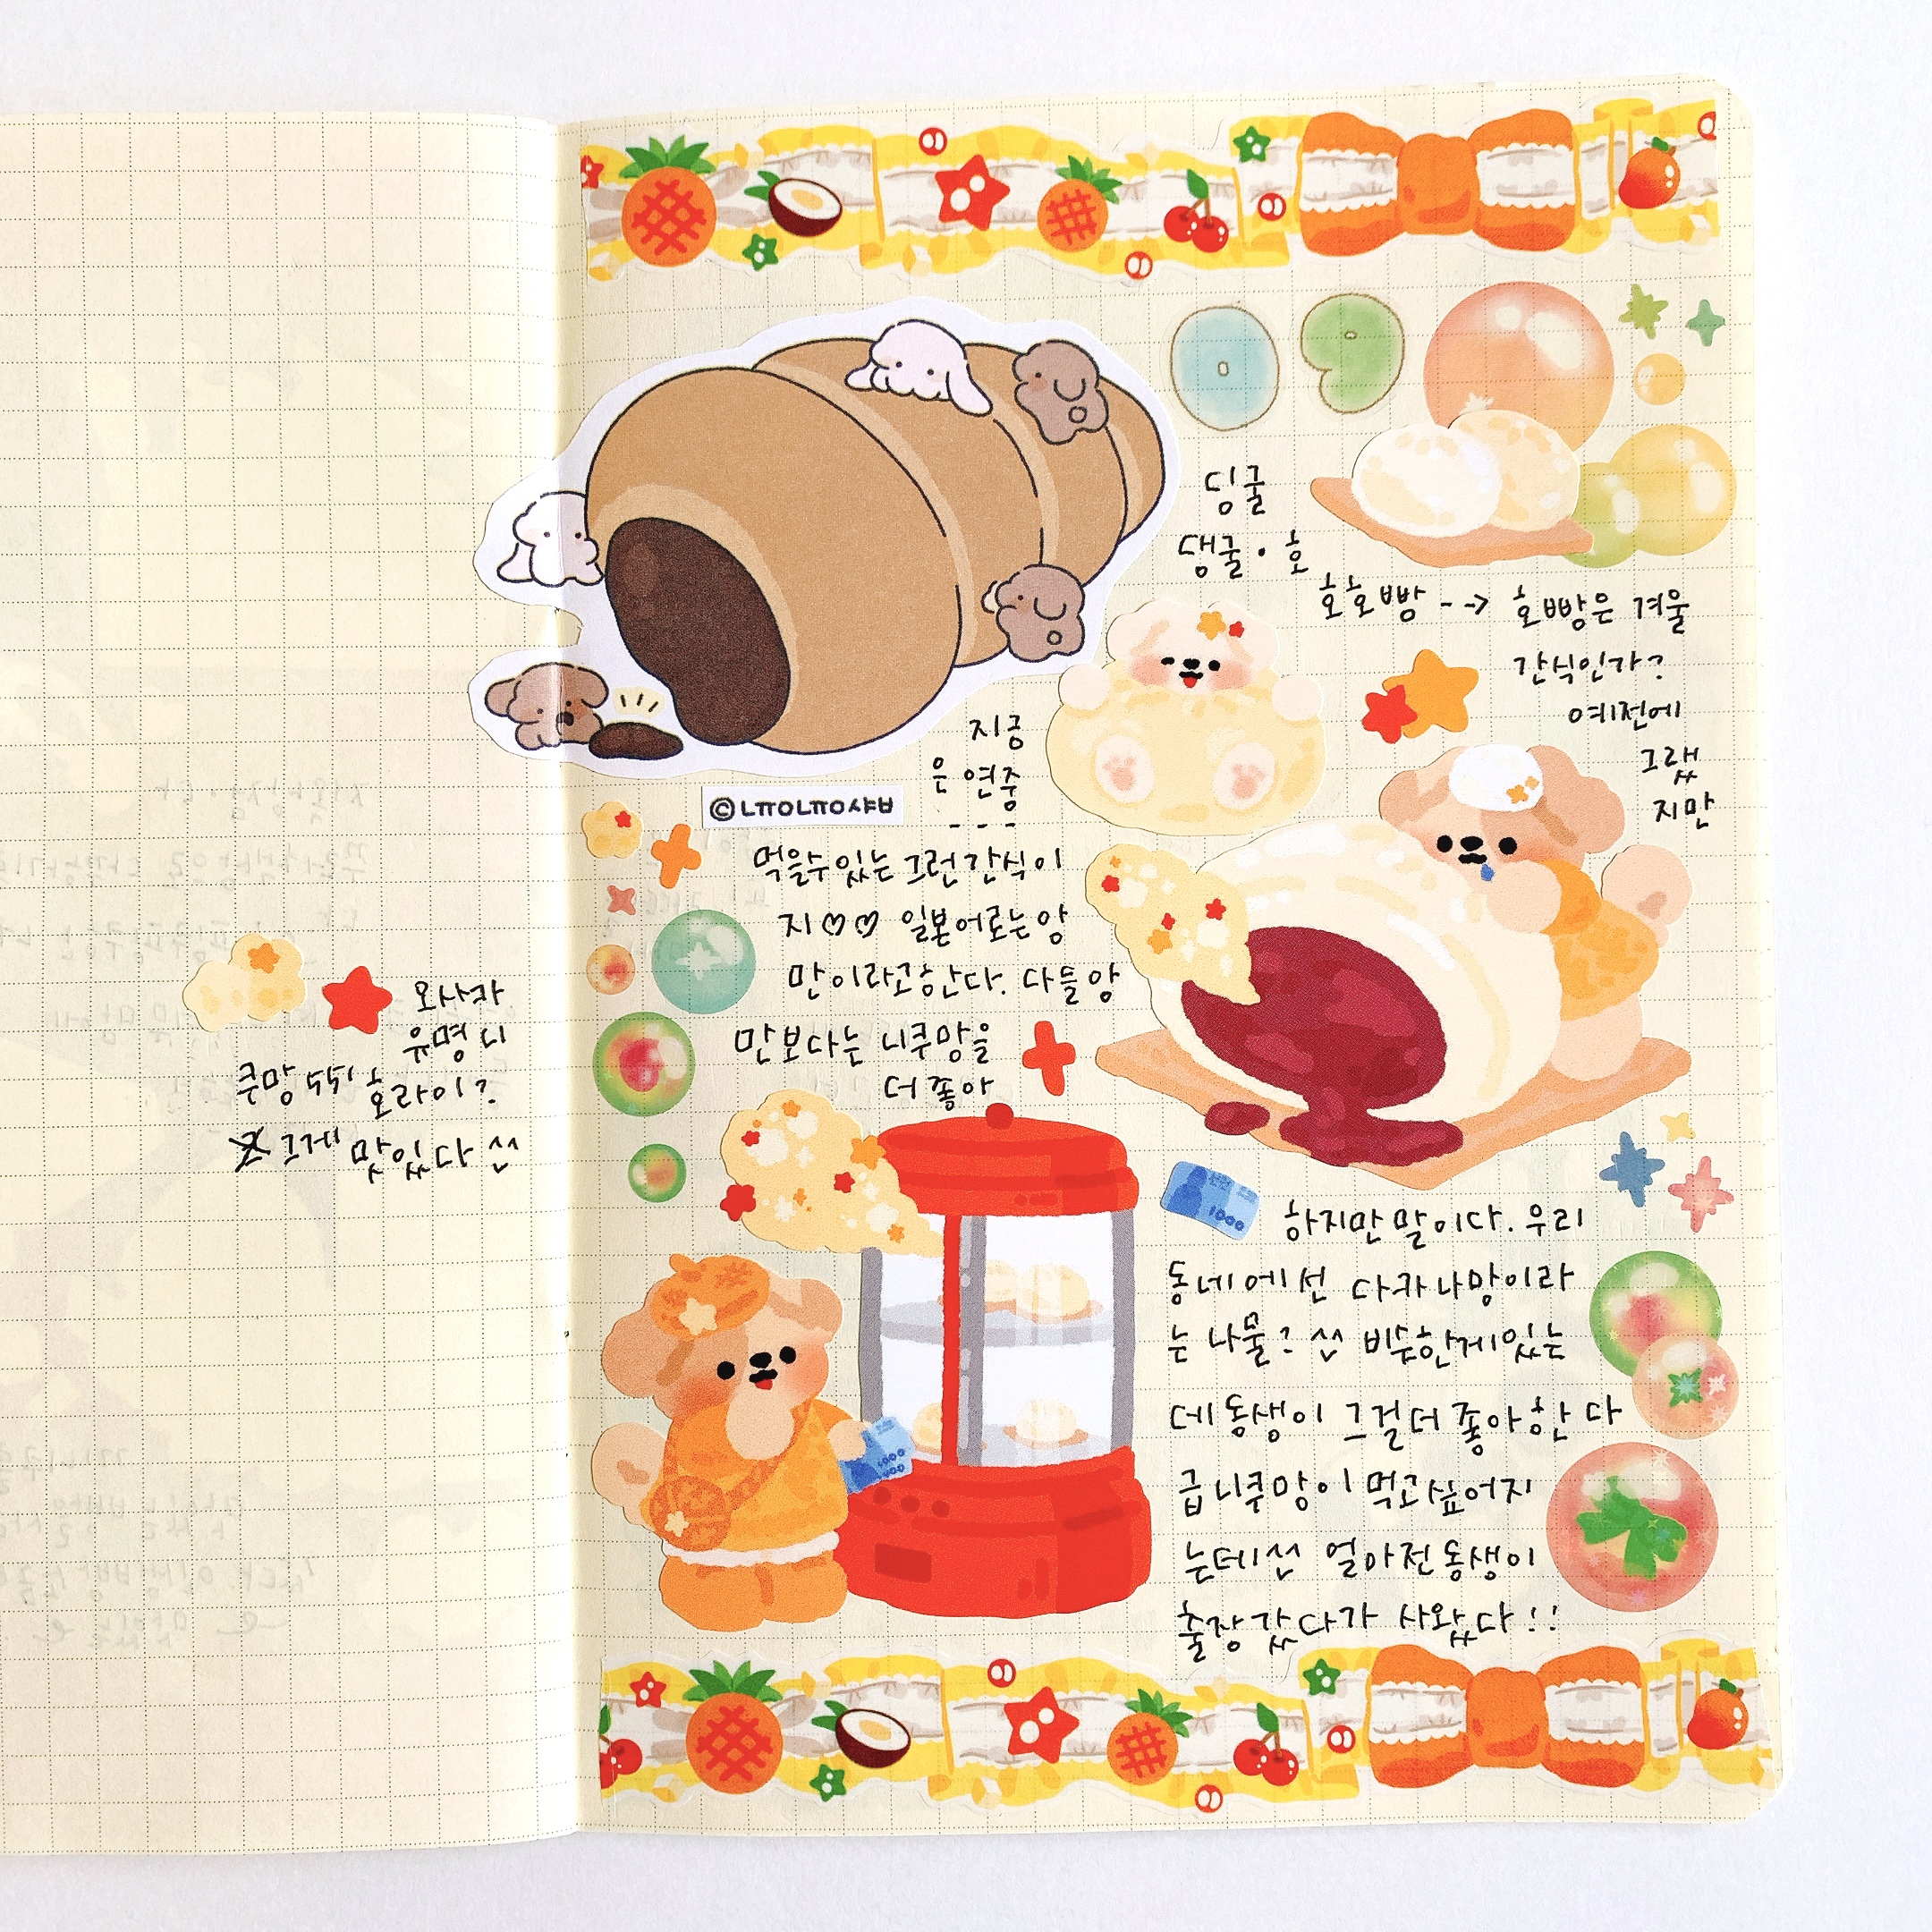 09
딩굴
댕굴·호
호호빵 --> 호빵은 겨울
간식인가?
예전에
그랬
지만
지금
은 연중
---
먹을수 있는 그런 간식이
지♡♡ 일본어로는 앙
만이라고한다. 다들 앙
만보다는 니쿠망을
더 좋아
하지만 말이다. 우리
동네에선 다카나망이라
는 나물? ^^ 비슷한게있는
데 동생이 그걸 더 좋아한다
급 니쿠망이 먹고싶어지
는데!^^ 얼마전 동생이
출장 갔다가 사왔다!!
오사카
유명 니
쿠망 551 호라이?
그게 맛있다 ^^
©
1000